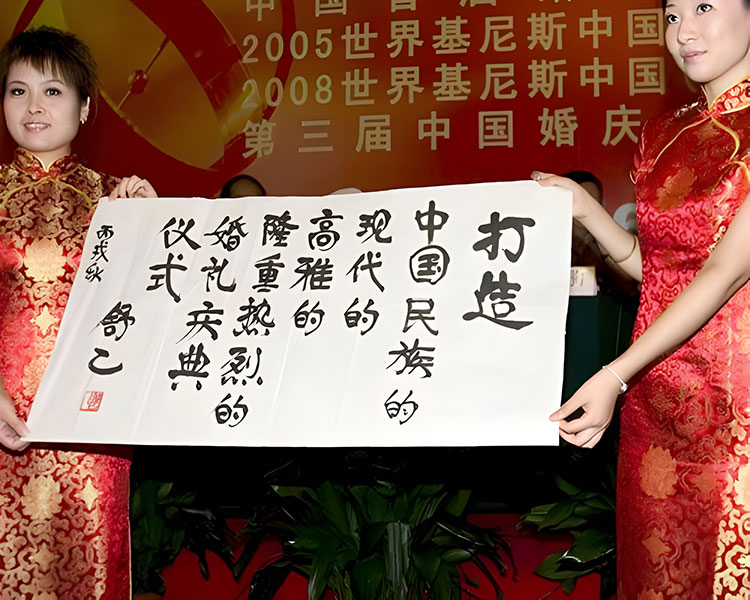 中国首届
2005世界基尼斯中国
2008世界基尼斯中国
第三届中国婚庆
打造
中国民族的
现代的
高雅的
隆重热烈的
婚礼庆典
仪式
丙戌秋
舒乙